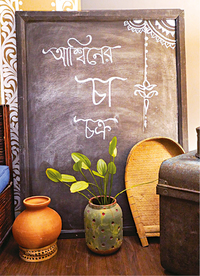 আশ্বিনের
চা
চক্র